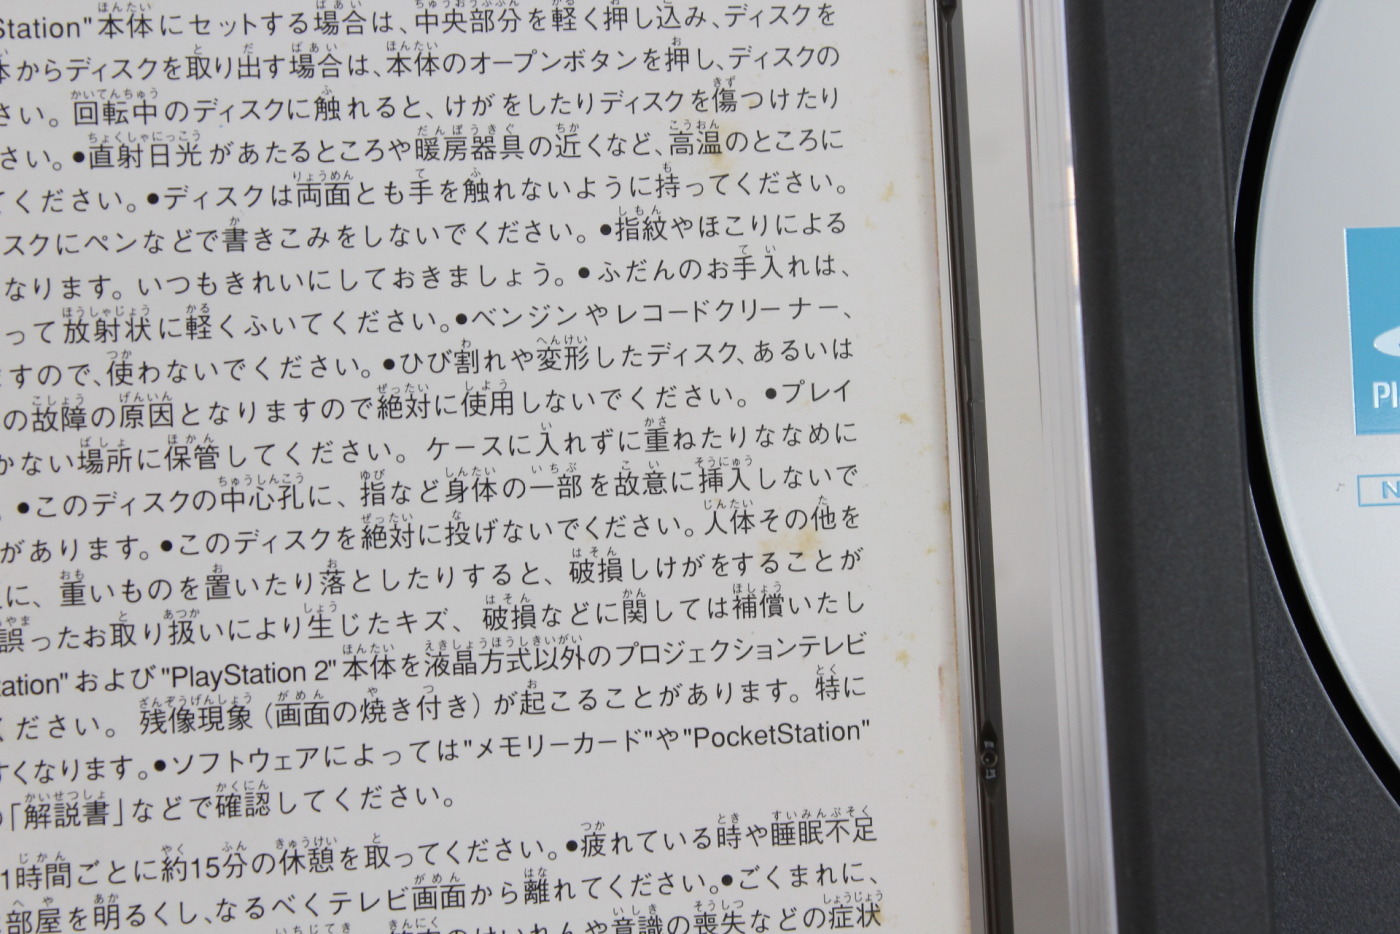 Station"本体にセットする場合は、中央部分を軽く押し込み、ディスクを
からディスクを取り出す場合は、本体のオープンボタンを押し、ディスクの
さい。回転中のディスクに触れると、けがをしたりディスクを傷つけたり
さい。●直射日光があたるところや暖房器具の近くなど、高温のところに
てください。●ディスクは両面とも手を触れないように持ってください。
スクにペンなどで書きこみをしないでください。●指紋やほこりによる
なります。いつもきれいにしておきましょう。●ふだんのお手入れは、
って放射状に軽くふいてください。●ベンジンやレコードクリーナー、
ますので、使わないでください。●ひび割れや変形したディスク、あるいは
の故障の原因となりますので絶対に使用しないでください。●プレイ
かない場所に保管してください。ケースに入れずに重ねたりななめに
。●このディスクの中心孔に、指など身体の一部を故意に挿入しないで
があります。●このディスクを絶対に投げないでください。人体その他を
に、重いものを置いたり落としたりすると、破損しけがをすることが
誤ったお取り扱いにより生じたキズ、破損などに関しては補償いたし
tation"および"PlayStation 2"本体を液晶方式以外のプロジェクションテレビ
ください。残像現象(画面の焼き付き)が起こることがあります。特に
すくなります。●ソフトウェアによっては"メモリーカード"や"PocketStation"
の「解説書」などで確認してください。
1時間ごとに約15分の休憩を取ってください。●疲れている時や睡眠不足
部屋を明るくし、なるべくテレビ画面から離れてください。●ごくまれに、
のけいれんや意識の喪失などの症状
Pl
N